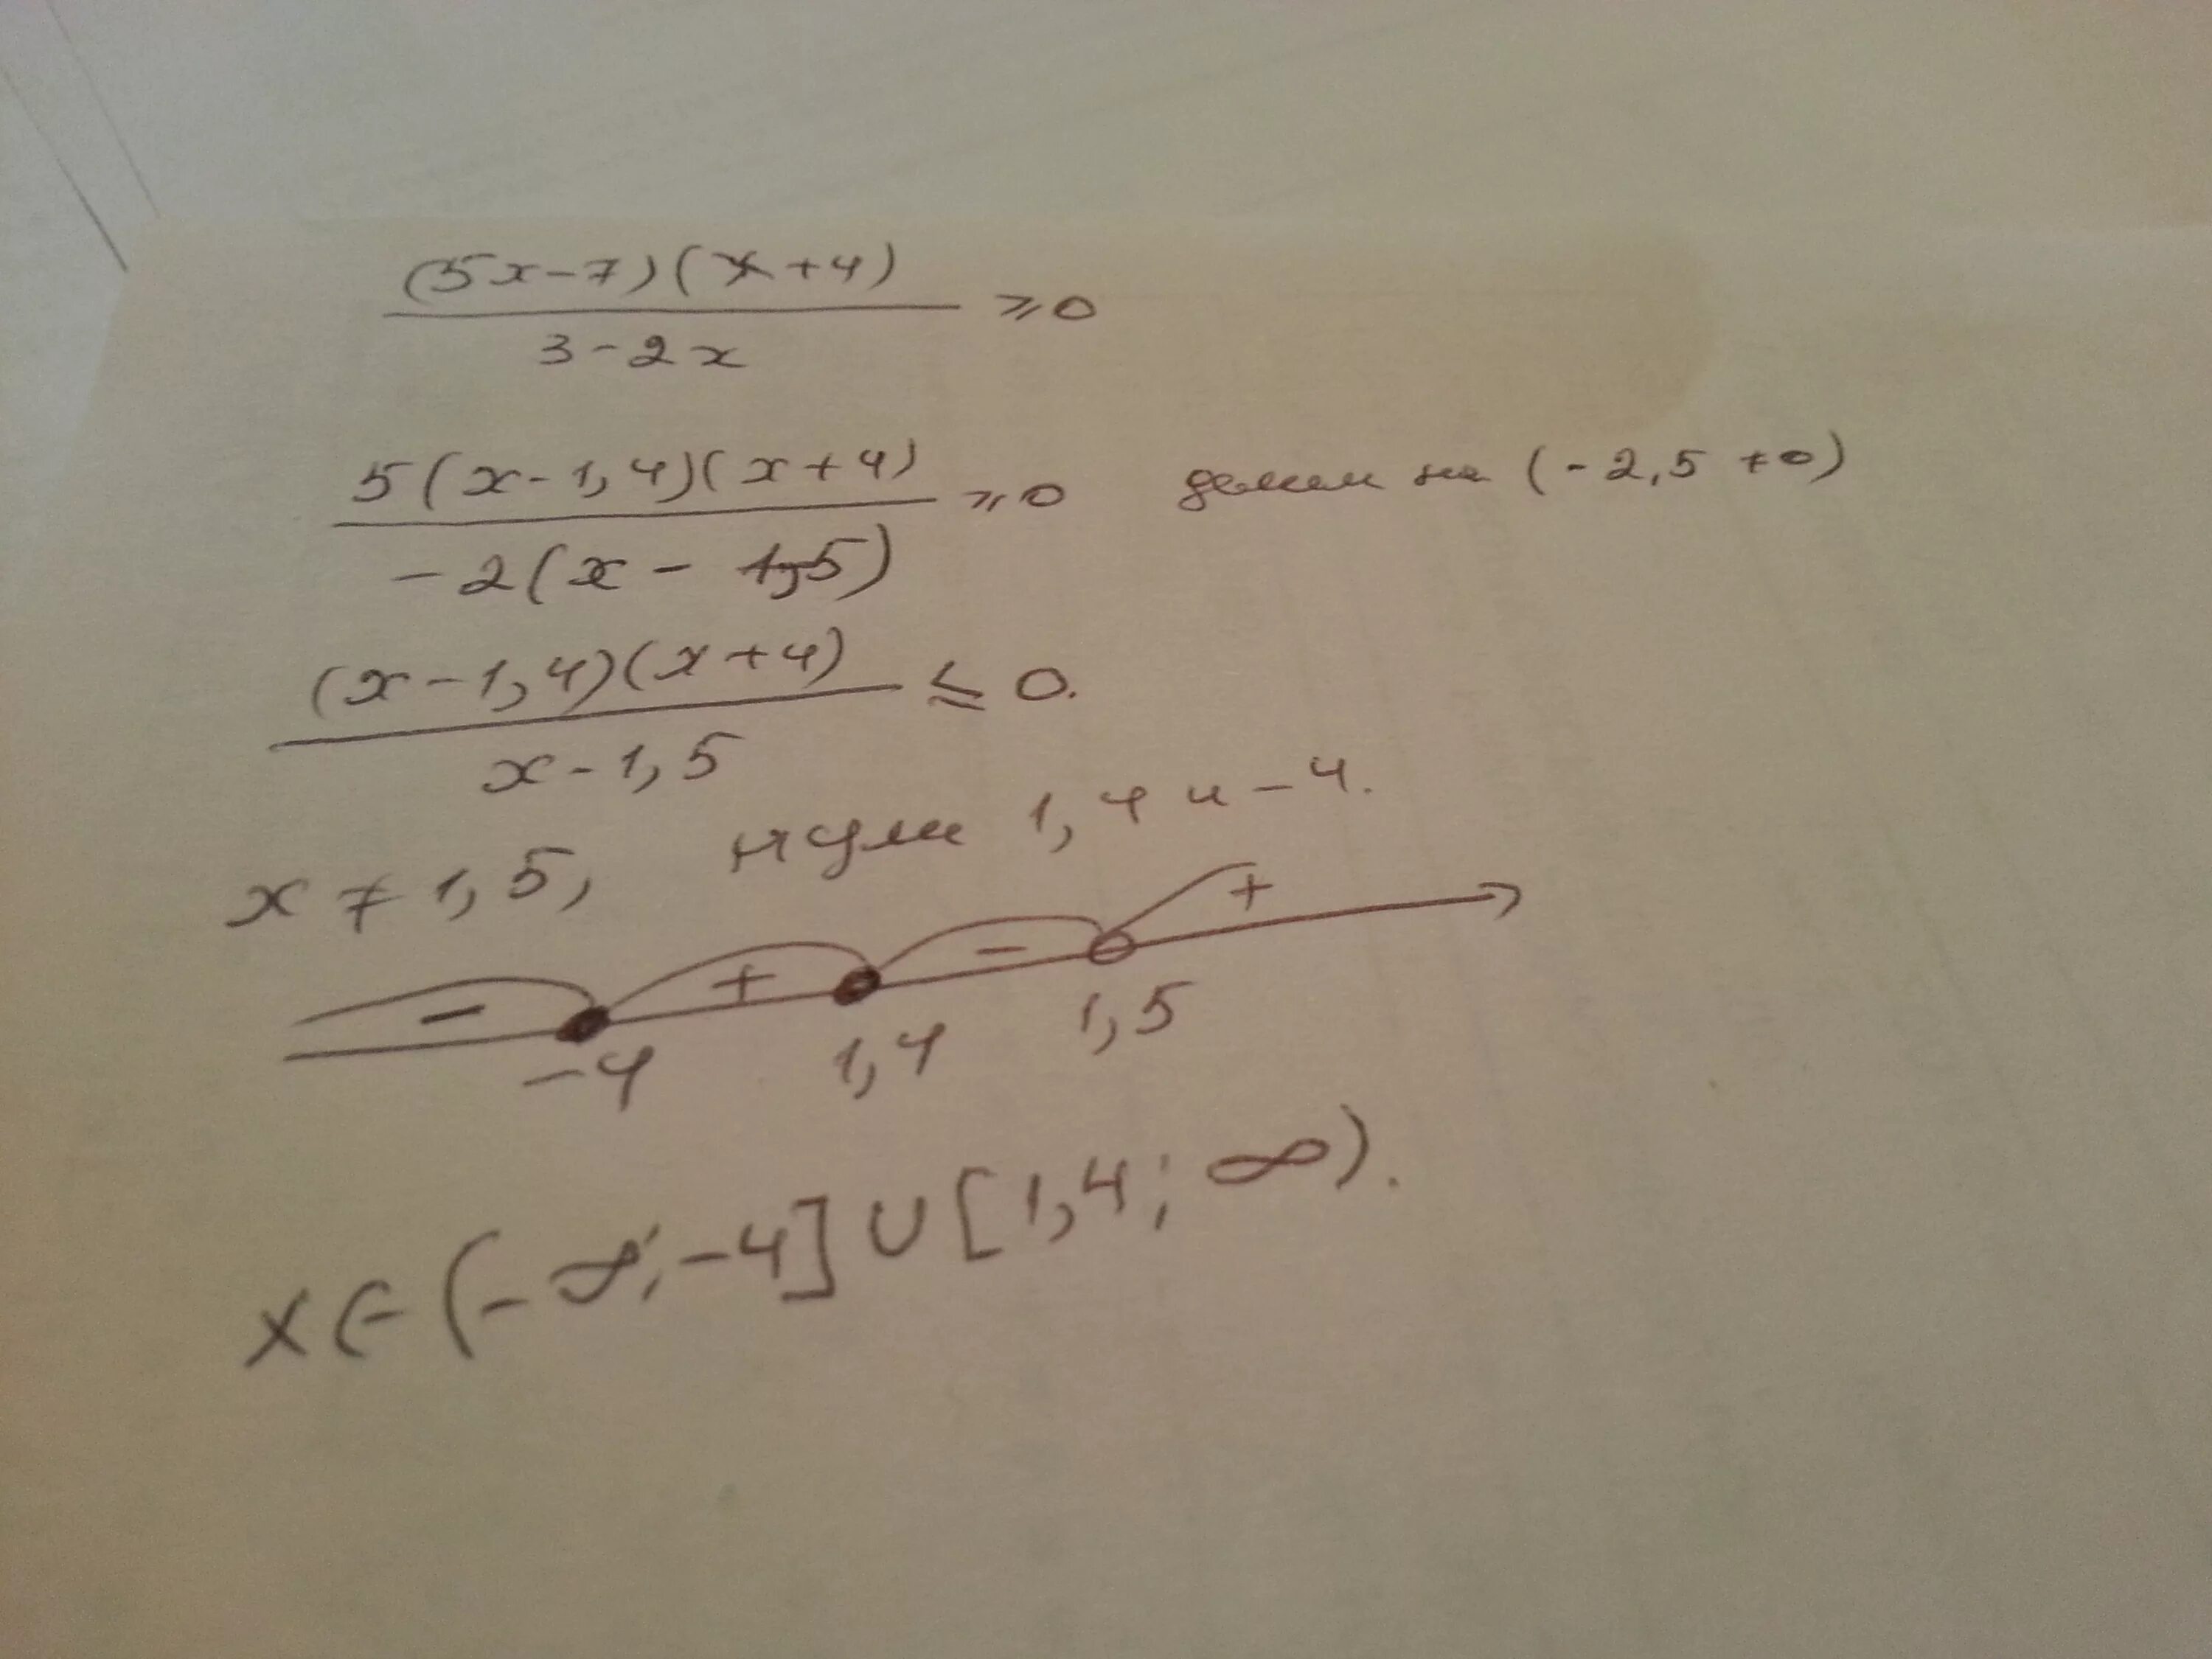 (5x-7)(x+4)
3-2x
≥0
5(x-1,4)(x+4)
-2(x-1,5)
≥0 делим на (-2,5 ≠0)
(x-1,4)(x+4)
x-1,5
≤ 0.
x ≠ 1,5, нули 1,4 и -4.
- + - +
-4 1,4 1,5
x∈(-∞;-4]∪[1,4;∞).